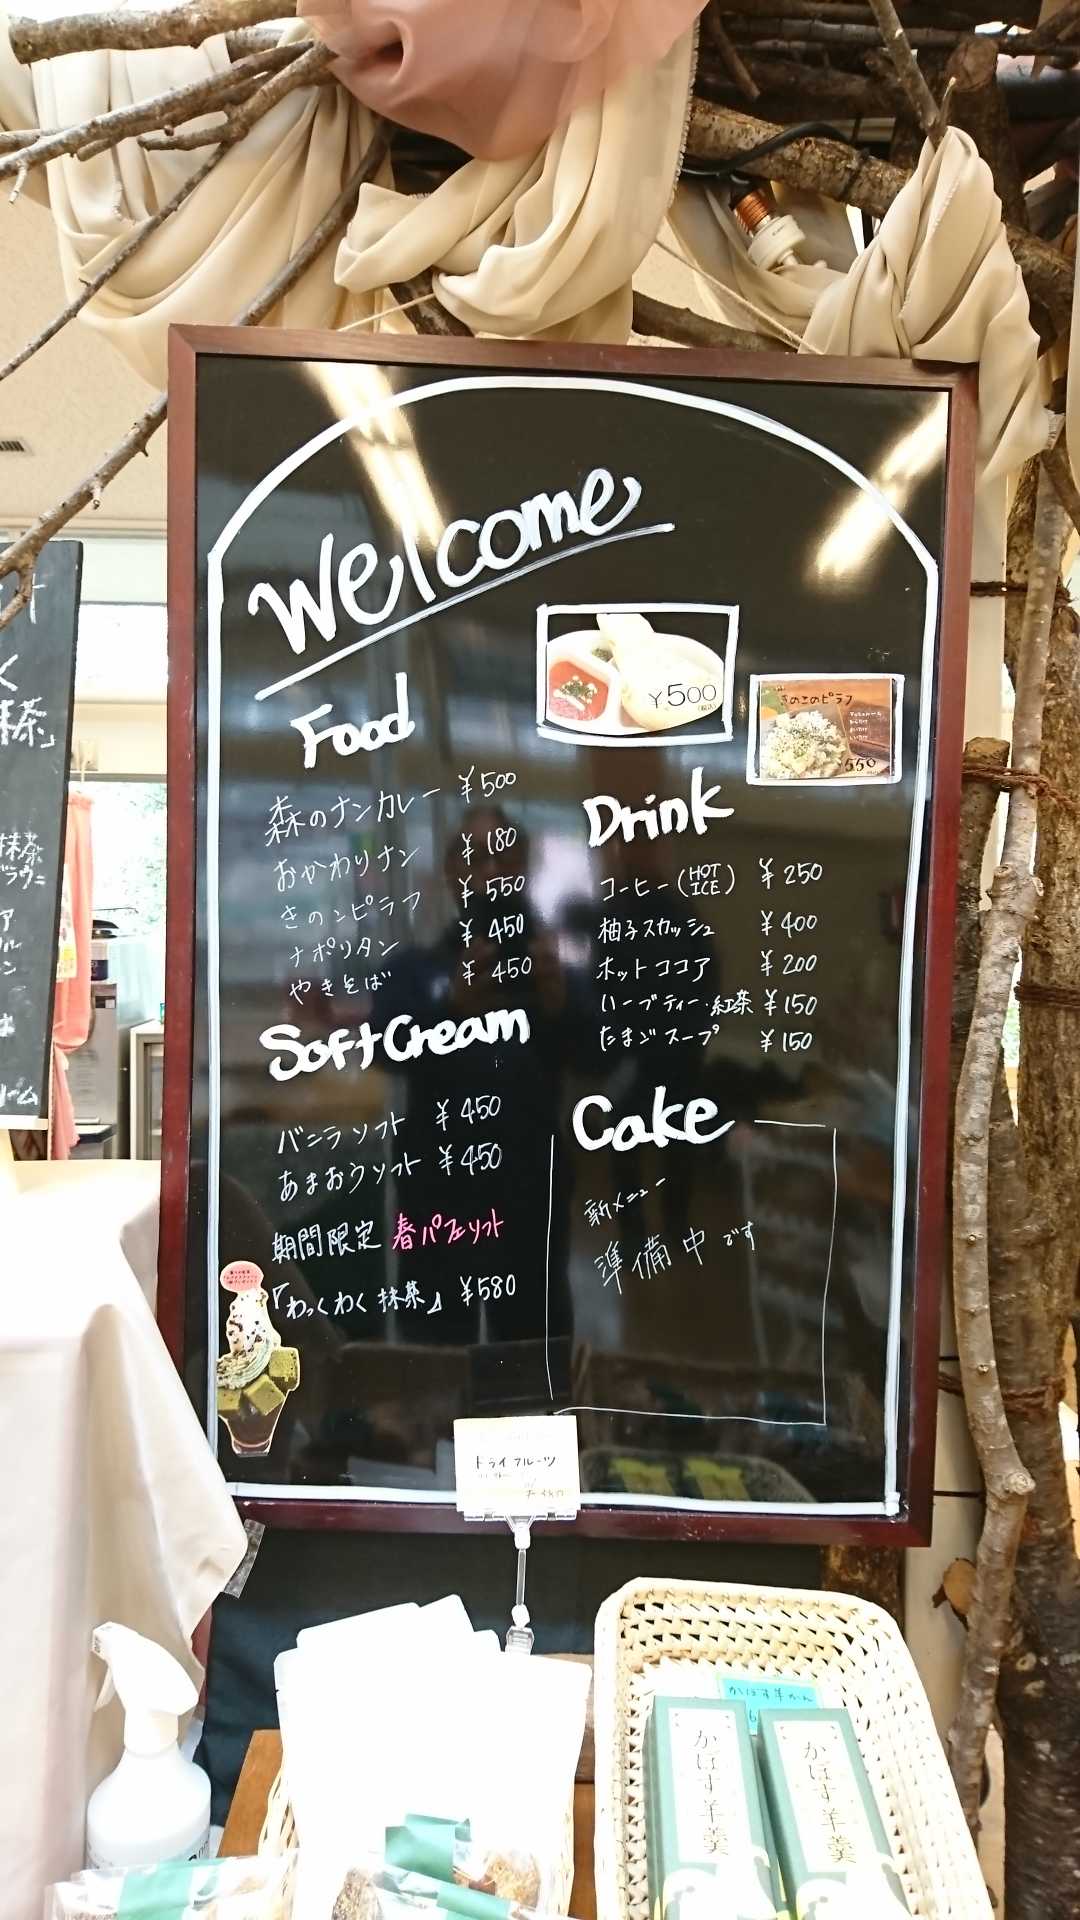 Welcome
Food
森のナンカレー ¥500
おかわりナン ¥180
きのこピラフ ¥550
ナポリタン ¥450
やきそば ¥450
Soft Cream
バニラソフト ¥450
あまおうソフト ¥450
期間限定 春パフェソフト
「わっくわく抹茶」 ¥580
¥500
(税込)
きのこのピラフ
¥550
Drink
コーヒー(HOT ICE) ¥250
柚子スカッシュ ¥400
ホットココア ¥200
ハーブティー・紅茶 ¥150
たまごスープ ¥150
Cake
新メニュー
準備中です
ドライフルーツ
かぼす羊かん
かぼす羊羹
かぼす羊羹
抹茶」
抹茶